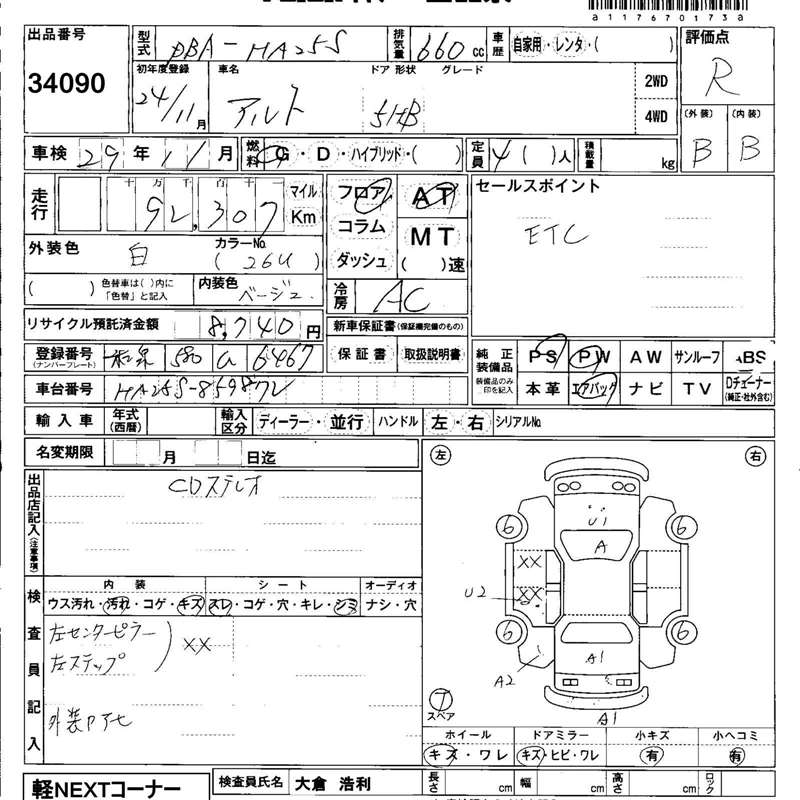 a1176701 73a
出品番号 34090
型式 DBA-HA25S 排気量 660 cc 車歴 自家用・レンタ・( ) 評価点 R
初年度登録 24/11月 車名 アルト ドア 形状 5HB グレード 2WD 4WD
(外装) B (内装) B
車検 29年 11月 燃料 G・D・ハイブリッド・( ) 定員 4 ( )人 積載量 kg
走行 十万千百十一 92,307 マイル Km
フロア コラム ダッシュ AT MT ( )速
セールスポイント
ETC
外装色 白 カラーNo. ( 26U )
( ) 色替車は( )内に「色替」と記入 内装色 ベージュ
冷房 AC
リサイクル預託済金額 8,740 円 新車保証書 (保証継続完備のもの)
登録番号 (ナンバープレート) 和泉 580 a 6467 保証書 取扱説明書
純正装備品 装備品のみ印を記入 PS PW AW サンルーフ ABS
本革 エアバック ナビ TV Dチェーナー (純正・社外含む)
車台番号 HA25S-859872
輸入車 年式 (西暦) 輸入区分 ディーラー・並行 ハンドル 左・右 シリアルNo.
名変期限 月 日迄
左 右
出品店記入 (注意事項)
CDステレオ
検査員記入
内装 シート オーディオ
ウス汚れ・汚れ・コゲ・キズ スレ・コゲ・穴・キレ・シミ ナシ・穴
左センターピラー
左ステップ
XX
外装PアセU1
A
6 6
XX
XX
U2
6 6
A1
A2
7 スペア
A1
ホイール ドアミラー 小キズ 小ヘコミ
キズ・ワレ キズ・ヒビ・ワレ 有 有
軽NEXTコーナー 検査員氏名 大倉 浩利 長さ cm 幅 cm 高さ cm ロック